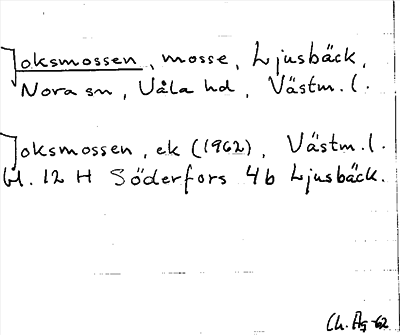 Joksmossen, mosse, Ljusbäck,
Nora sn, Våla hd, Västm. l.
Joksmossen, ek (1962), Västm. l.
bl. 12 H Söderfors 4b Ljusbäck.
Ch. Ag -62